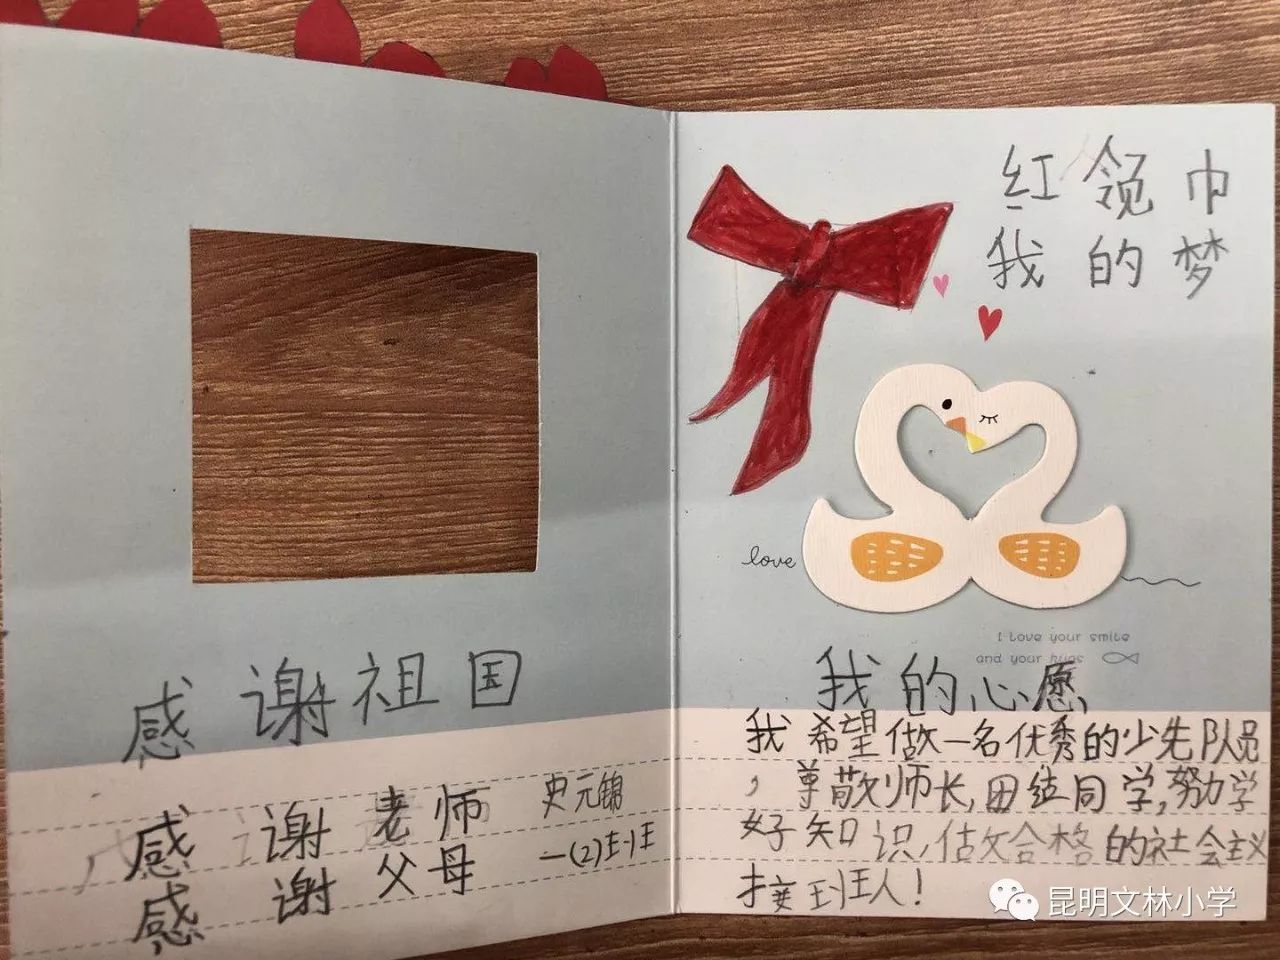 感谢祖国
感谢老师
感谢父母
史元锦
一(2)班
红领巾
我的梦
love
I love your smile
and your hugs
我的心愿
我希望做一名优秀的少先队员
，尊敬师长，团结同学，努力学
好知识，做合格的社会主义
接班人！
昆明文林小学